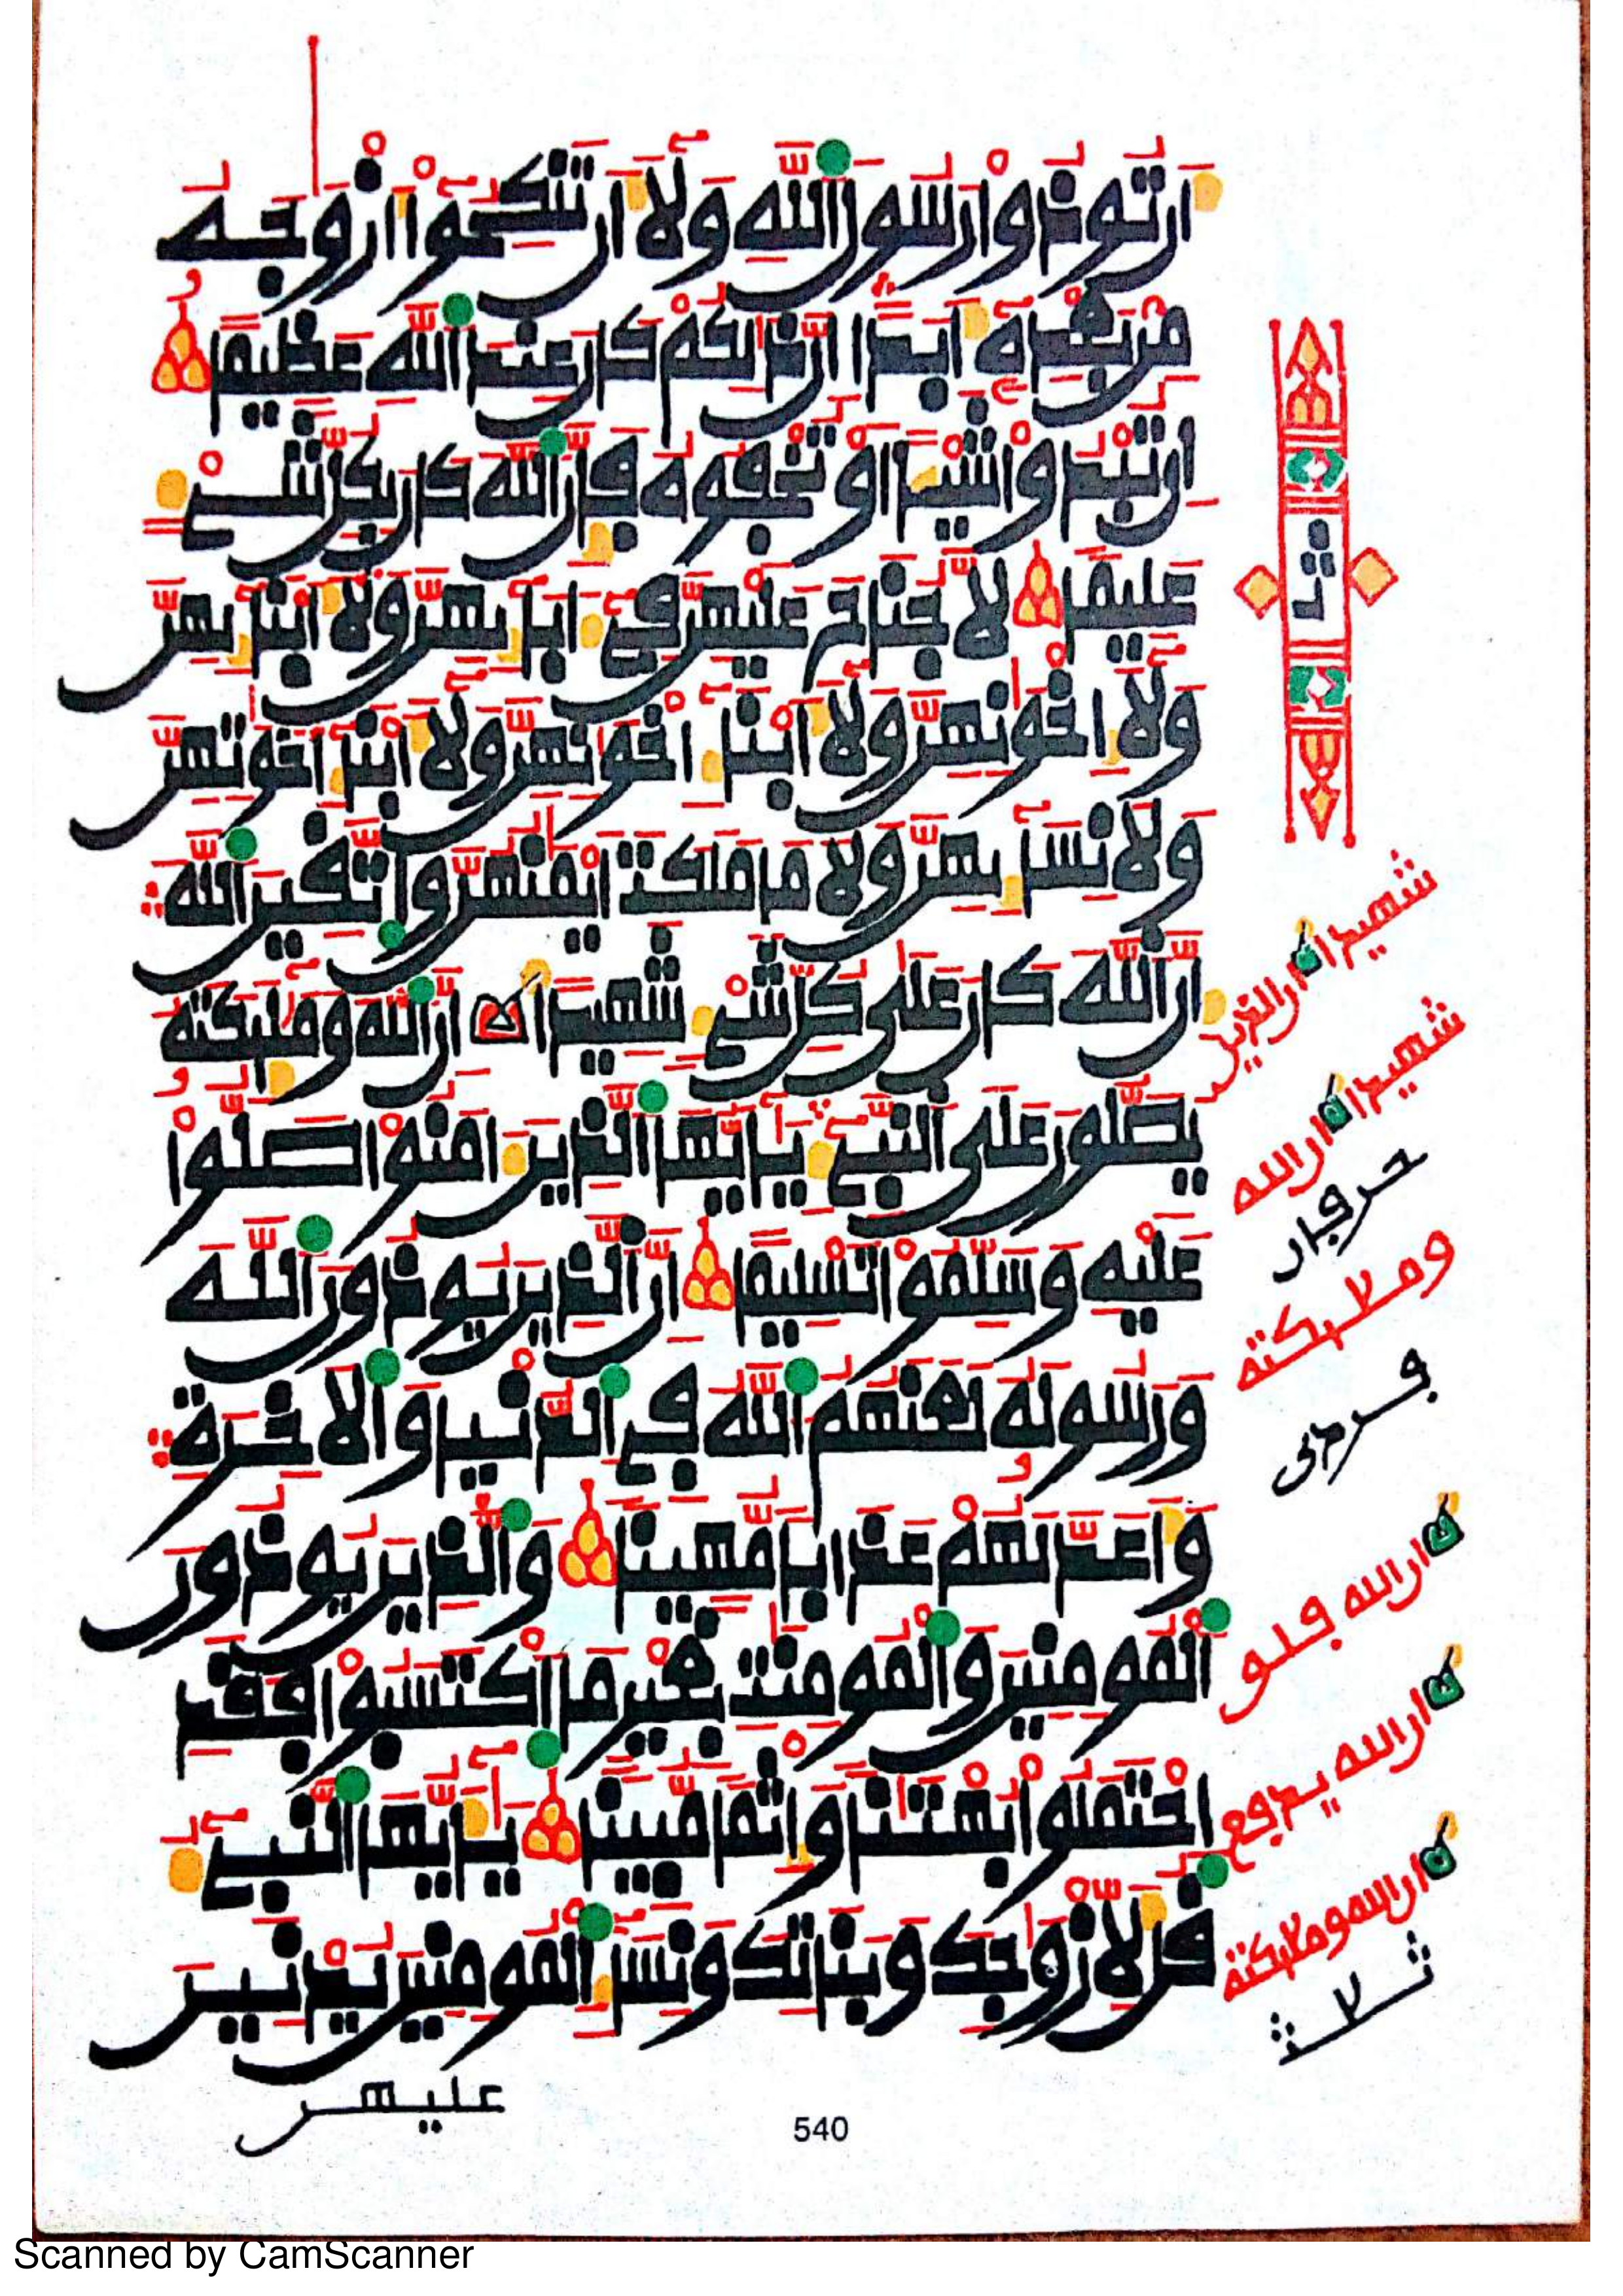 أَن تُوذُوا رَسُولَ اللَّهِ وَلَا أَن تَنكِحُوا أَزْوَاجَهُ
مِن بَعْدِهِ أَبَدًا إِنَّ ذَالِكُمْ كَانَ عِندَ اللَّهِ عَظِيمًا
إِن تُبْدُوا شَيْئًا أَوْ تُخْفُوهُ فَإِنَّ اللَّهَ كَانَ بِكُلِّ شَيْءٍ
عَلِيمًا لَّا جُنَاحَ عَلَيْهِنَّ فِي ءَابَائِهِنَّ وَلَا أَبْنَائِهِنَّ
وَلَا إِخْوَانِهِنَّ وَلَا أَبْنَاءِ إِخْوَانِهِنَّ وَلَا أَبْنَاءِ أَخَوَاتِهِنَّ
وَلَا نِسَائِهِنَّ وَلَا مَا مَلَكَتْ أَيْمَانُهُنَّ وَاتَّقِينَ اللَّهَ
إِنَّ اللَّهَ كَانَ عَلَى كُلِّ شَيْءٍ شَهِيدًا إِنَّ اللَّهَ وَمَلَائِكَتَهُ
يُصَلُّونَ عَلَى النَّبِيءِ يَا أَيُّهَا الَّذِينَ ءَامَنُوا صَلُّوا
عَلَيْهِ وَسَلِّمُوا تَسْلِيمًا إِنَّ الَّذِينَ يُوذُونَ اللَّهَ
وَرَسُولَهُ لَعَنَهُمُ اللَّهُ فِي الدُّنْيَا وَالْآخِرَةِ
وَأَعَدَّ لَهُمْ عَذَابًا مُّهِينًا وَالَّذِينَ يُوذُونَ
الْمُومِنِينَ وَالْمُومِنَاتِ بِغَيْرِ مَا اكْتَسَبُوا فَقَدِ
احْتَمَلُوا بُهْتَانًا وَإِثْمًا مُّبِينًا يَا أَيُّهَا النَّبِيءُ
قُل لِّأَزْوَاجِكَ وَبَنَاتِكَ وَنِسَاءِ الْمُومِنِينَ يُدْنِينَ
عليهن
540
ثمن
شهيدا ان الذين
شهيدا ان الله
وملائكته
ان الله
ان الله يدفع
ان الله وملائكته
ثلاث
Scanned by CamScanner